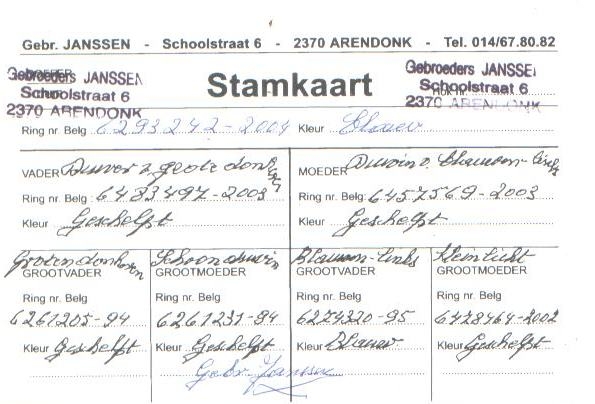 Gebr. JANSSEN - Schoolstraat 6 - 2370 ARENDONK - Tel. 014/67.80.82
Gebroeders JANSSEN
Schoolstraat 6
2370 ARENDONK
Stamkaart
Gebroeders JANSSEN
Schoolstraat 6
2370 ARENDONK
Ring nr Belg 6293242-2004 Kleur Blauw
VADER Duiver z. grote donk
Ring nr. Belg: 6483497-2003
Kleur Geschelpt
MOEDER Duivin v. Blauwen-links
Ring nr. Belg: 6457569-2003
Kleur Geschelpt
Groten donkeren
GROOTVADER
Ring nr. Belg
6261205-94
Kleur Geschelpt
Schoon duivin
GROOTMOEDER
Ring nr. Belg
6261231-94
Kleur Geschelpt
Blauwen-links
GROOTVADER
Ring nr. Belg
6274320-95
Kleur Blauw
Klein licht
GROOTMOEDER
Ring nr. Belg
6478464-2002
Kleur Geschelpt
Gebr. Janssen